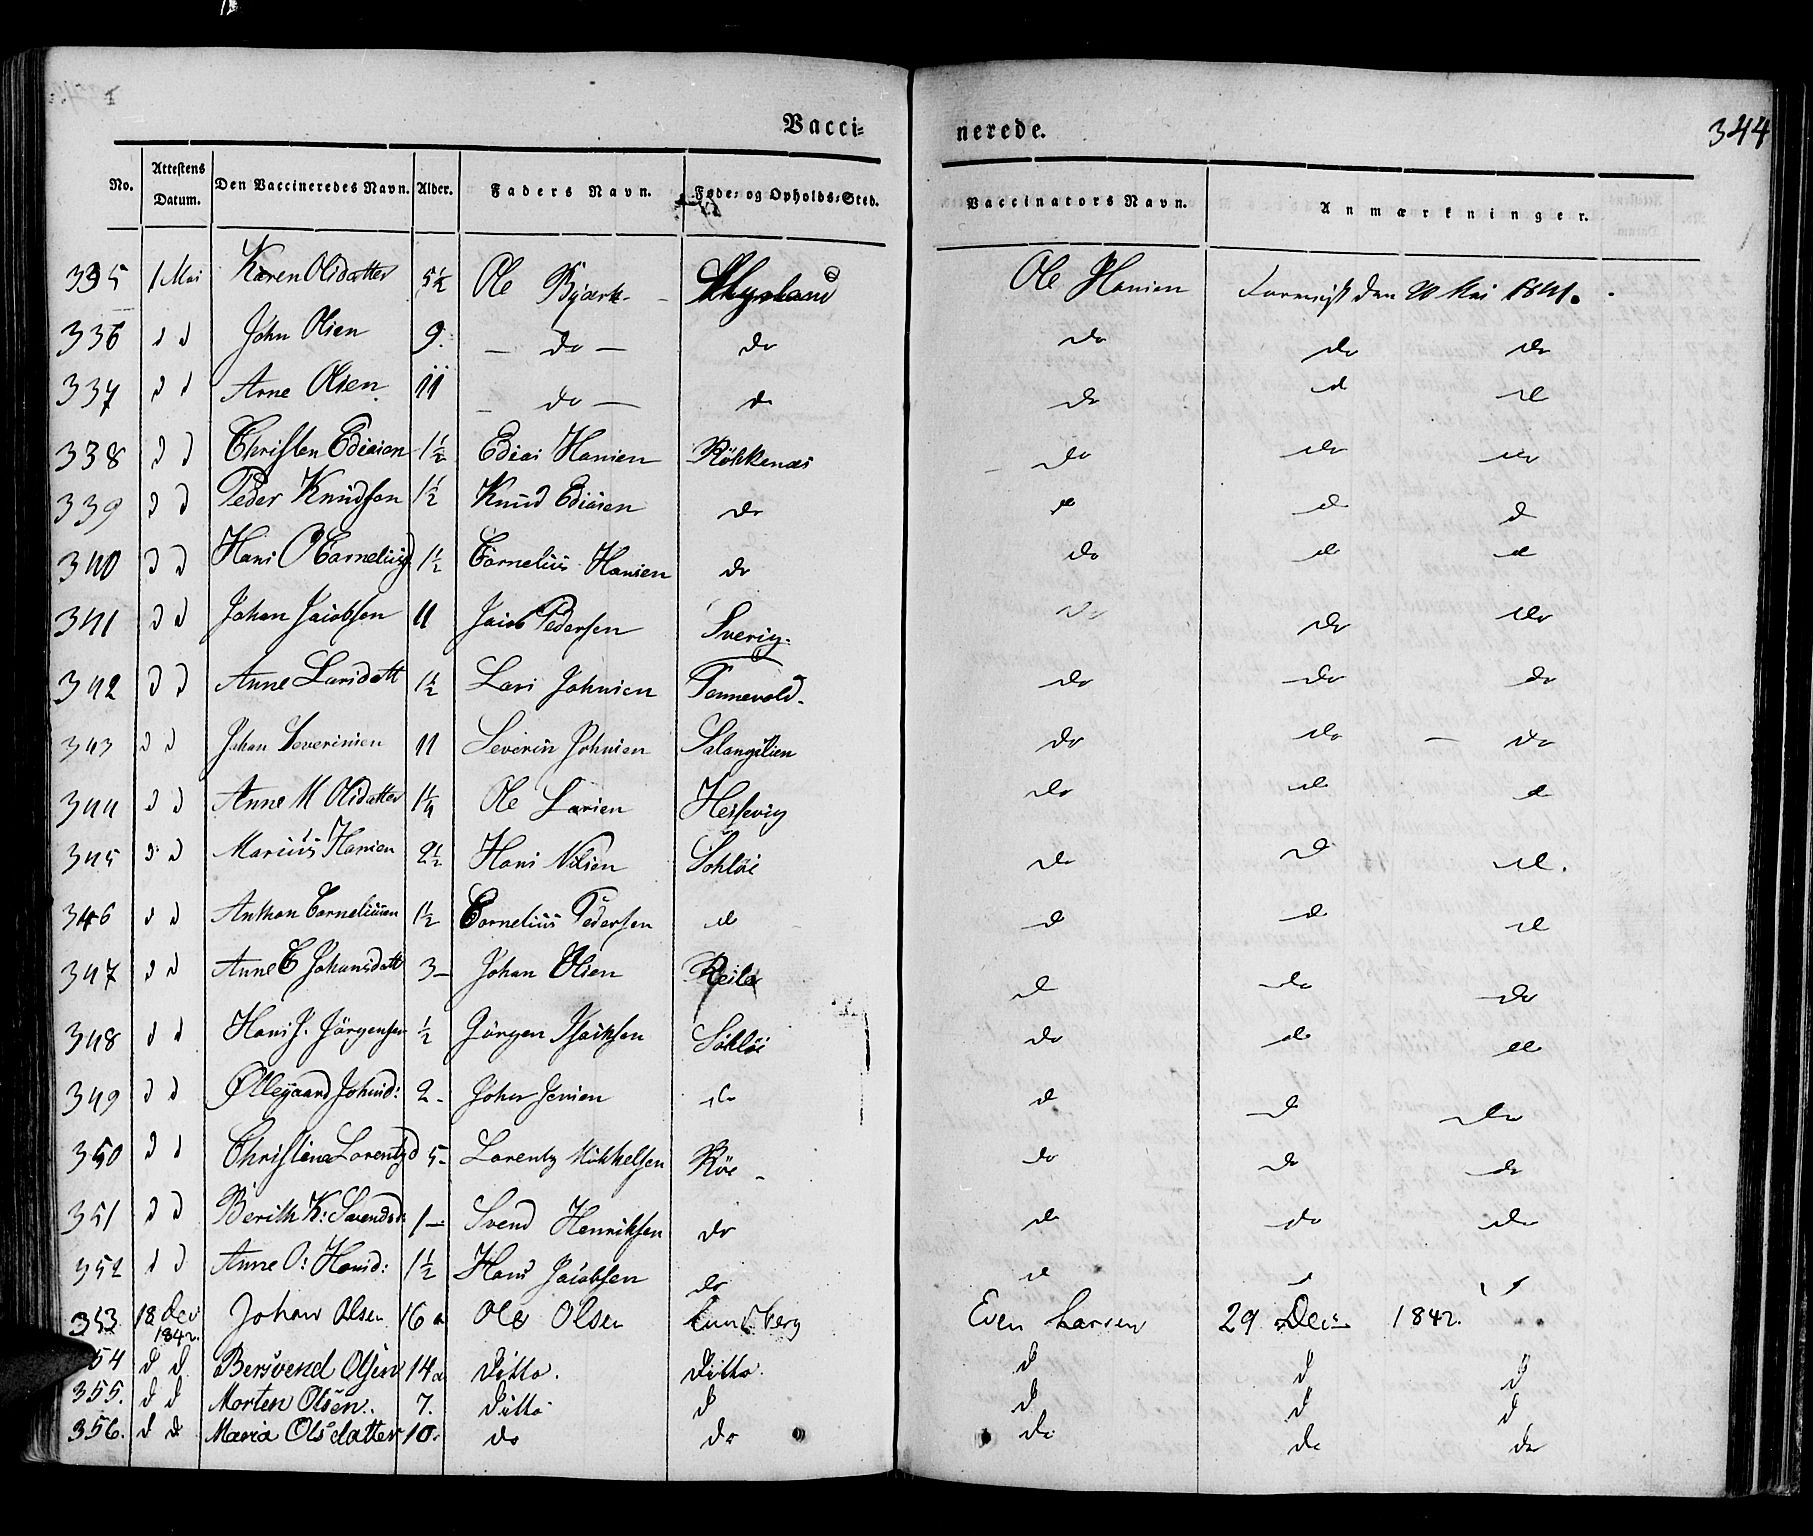 Vacci= nerede. 344
No. Attestens Datum. Den Vaccineredes Navn. Alder. Faders Navn. Føde= og Opholds=Sted. Vaccinators Navn. Anmærkninger.
335 1 Mai Karen Olsdatter 5½ Ole Bjørk Ole Hansen den 20 Mai 1841.
336 d d John Olsen 9. — do — do do do do
337 d d Arne Olsen 11 — do — do do d d
338 d d Christen Ediasen 1½ Edias Hansen Röhkenæs do do do
339 d d Peder Knudsen 1½ Knud Ediasen do d d d
340 d d Hans O Cornelius 1½ Cornelius Hansen do do d d
341 d d Johan Jacobsen 11 Jacob Pedersen Sverig. do do do
342 d d Anne Larsdatt 1½ Lars Johnsen Tennevold. do do do
343 d d Johan Severinsen 11 Severin Johnsen Salangslien do do — do
344 d d Anne M Olsdatter 1¼ Ole Larsen Hessevig do d d
345 d d Marius Hansen 2½ Hans Nilsen Söhløi do d d.
346 d d Anthon Corneliusen 1½ Cornelius Pedersen d d d d
347 d d Anne C Johansdatt 3— Johan Olsen d do do
348 d d Hans J. Jörgensen ½ Jörgen Isachsen Söhløi do d d
349 d d Ollegaard Johnsd: 2- John Jensen do d d do
350 d d Christina Lorentzd 5- Lorentz Mikkelsen Röe - do do do
351 d d Berith K: Svendsd: 1— Svend Henriksen do do do do
352 d d Anne O: Hansd: 1½ Hans Jacobsen do d
353. 18 Dec 1842. Johan Olsen 16 a Ole Olsen Lundberg Even Larsen 29 Dec 1842.
354 d d Bersvend Olsen 14 a Ditto. Ditto. d d d
355. d d Morten Olsen. 7. Ditto d d d d
356. d d Maria Olsdatter 10. do do do do do